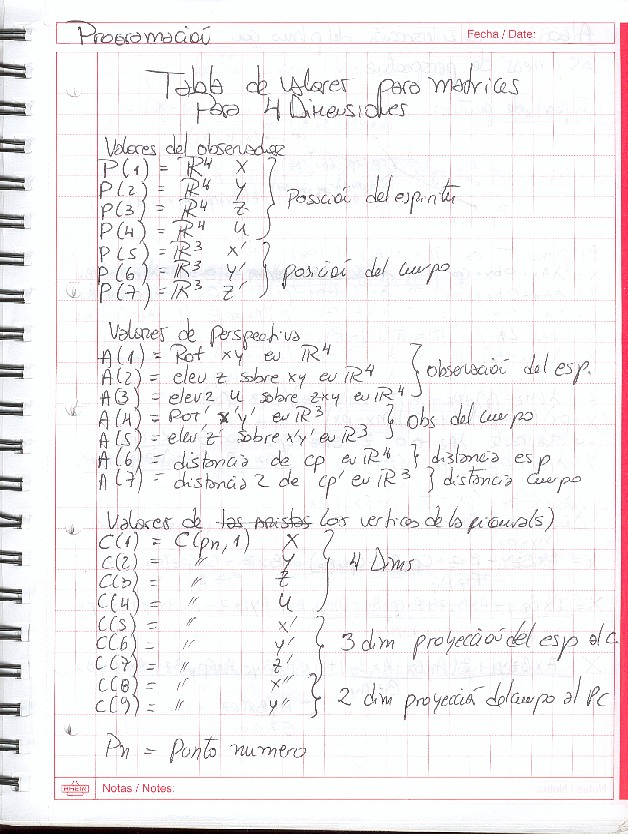 Programación
Fecha / Date:
Tabla de valores para matrices
para 4 Dimensiones
Valores del observador
P(1) = ℝ4 X
P(2) = ℝ4 Y
P(3) = ℝ4 Z
P(4) = ℝ4 U
Posición del espiritu
P(5) = ℝ3 X'
P(6) = ℝ3 Y'
P(7) = ℝ3 Z'
posición del cuerpo
Valores de perspectiva
A(1) = Rot xy en ℝ4
A(2) = elev z sobre xy en ℝ4
A(3) = elev2 u sobre zxy en ℝ4
observación del esp.
A(4) = Rot' x'y' en ℝ3
A(5) = elev' z' sobre x'y' en ℝ3
obs del cuerpo
A(6) = distancia de cp en ℝ4 } distancia esp
A(7) = distancia 2 de cp' en ℝ3 } distancia cuerpo
Valores de las aristas los vertices de la figura(s)
C(1) = C(pn,1) X
C(2) = " Y
C(3) = " Z
C(4) = " U
4 Dims
C(5) = " x'
C(6) = " y'
C(7) = " z'
3 dim proyección del esp al c.
C(8) = " x"
C(9) = " y"
2 dim proyección del cuerpo al PC
Pn = Punto numero
RHEIN
Notas / Notes: